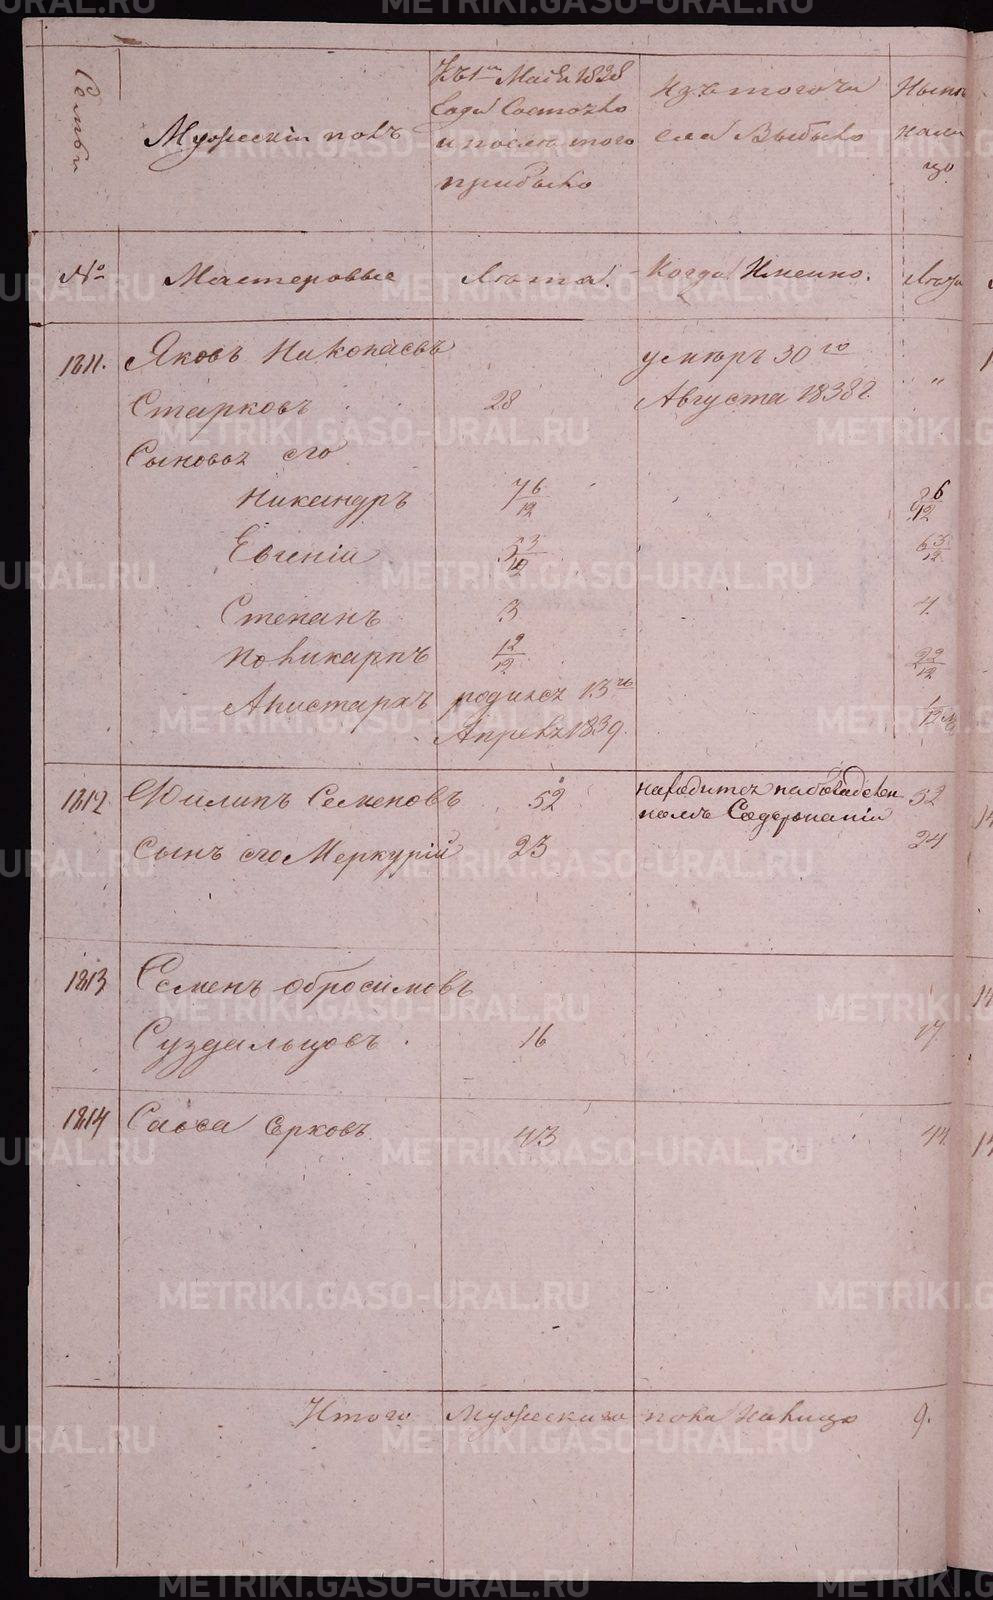 Семьи
Мужескій полъ
Къ 1му Маія 1838
года Состояло
и после того
прибыло
Изъ того чи
сла Выбыло
Ныне
нали
цо
№
Мастеровые
Лѣта.
Когда Именно.
Лѣта
1811.
Яковъ Николаевъ
умеръ 30го
Старковъ
28
Августа 1838г.
"
Сыновья его
Никандръ
7 6/12
8 6/12
Евгеній
5 3/12
6 3/12
Степанъ
3
4.
Поликарпъ
12/12
22/12
Аристархъ
родился 13го
Апреля 1839.
1/12 м
1812
Филипъ Семеновъ
52
находится на богадѣлен
номъ Содержаніи
52
Сынъ его Меркурій
23
24
1813
Семенъ обросимовъ
Суздальцовъ.
16
17.
1814
Савва Ерковъ
43
44.
Итого Мужескаго пола Налицо 9.
METRIKI.GASO-URAL.RU